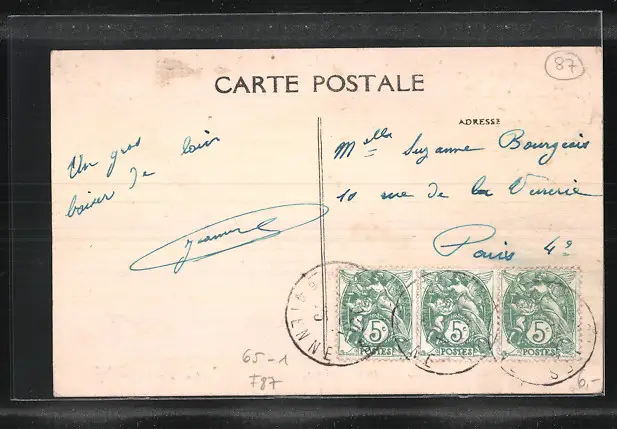 CARTE POSTALE
87
ADRESSE
Un gros
baiser de loin
Melle Suzanne Bourgeois
10 rue de la Verrerie
Paris 4e
5c 5c 5c
POSTES POSTES POSTES
IENNE
65-1
F87
6,-